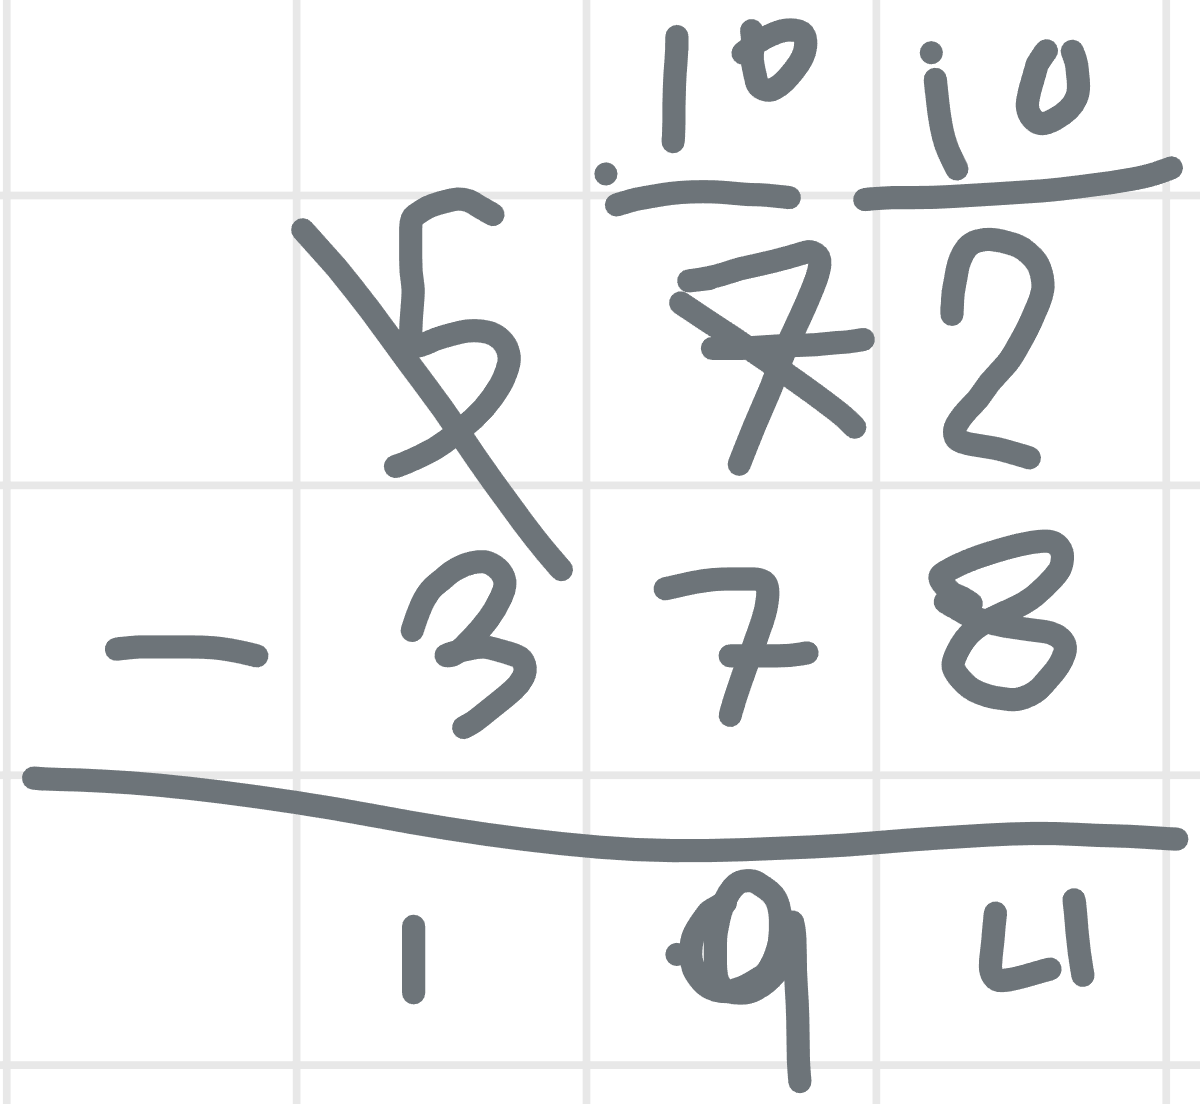 10 10
5 7 2
- 3 7 8
1 9 4